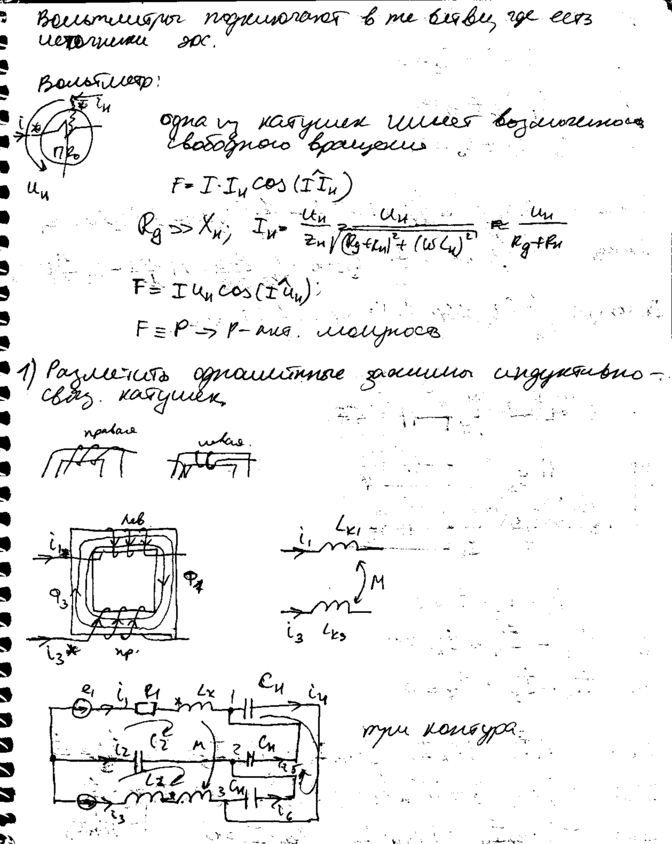 Вольтметры подключают в те ветви, где есть
источники эдс.
Вольтметр:
i * * iн
П Rд
uн
одна из катушек имеет возможность
свободного вращения
F = I·Iн cos(I^Iн)
Rg >> Xн; Iн = uн/zн = uн/√((Rg+Rн)²+(ωLн)²) ≈ uн/(Rg+Rн)
F ≡ I uн cos(I^uн);
F ≡ P → P-акт. мощность
1) Разметить одноимённые зажимы индуктивно-
связ. катушек
правая левая.
лев
i1* Φ3
i3* пр.
i1 Lк1
M
i3 Lк3
e1 i1 R1 Lк * 1 Cн i4
i2 C2 M 2 Cн i5
i3 * 3 Cн i6
три контура